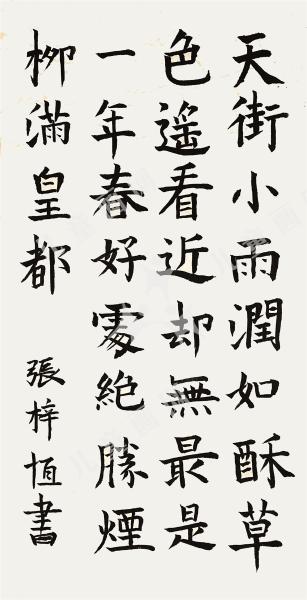 天街小雨潤如酥草
色遥看近却無最是
一年春好處絶勝煙
柳滿皇都
張梓恒書